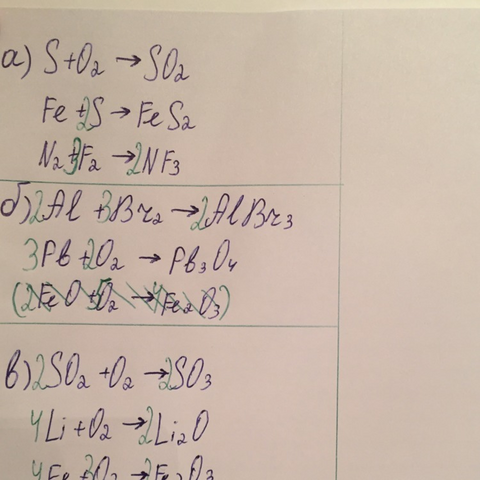 а) S + O₂ → SO₂
Fe + 2S → FeS₂
N₂ + 3F₂ → 2NF₃
б) 2Al + 3Br₂ → 2AlBr₃
3Pb + 2O₂ → Pb₃O₄
(2FeO + 5O₂ → 4Fe₂O₃)
в) 2SO₂ + O₂ → 2SO₃
4Li + O₂ → 2Li₂O
4Fe 3O₂ → 2Fe₂O₃